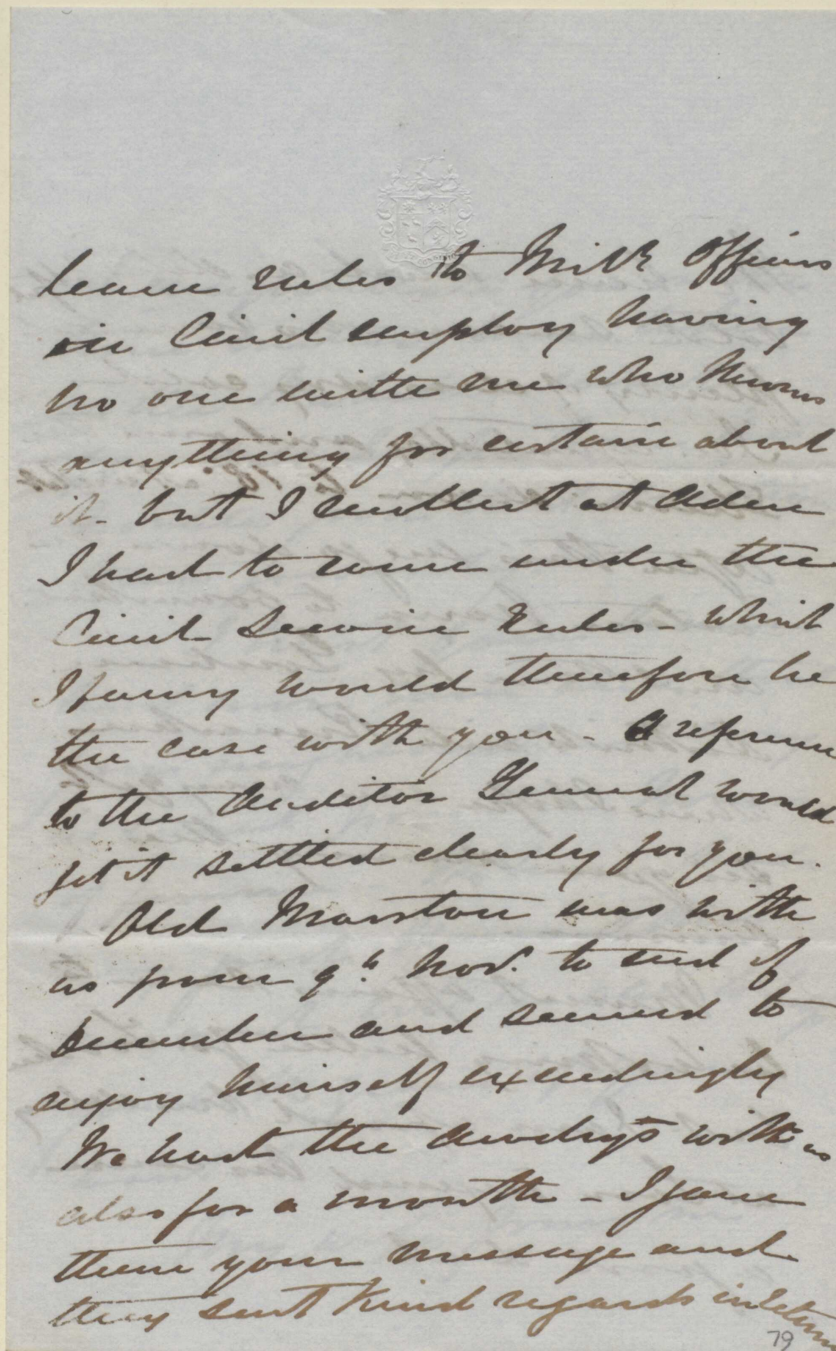 leave rules to Mily Officers
in Civil employ having
no one with me who knows
anything for certain about
it - but I recollect at Aden
I had to come under the
Civil Service Rules - which
I fancy would therefore be
the case with you - A reference
to the Auditor General would
get it settled clearly for you.
Old Marston was with
us from 9th Novr. to end of
December and seemed to
enjoy himself exceedingly
We had the with us
also for a month - I gave
them your message and
they sent kind regards in return
79